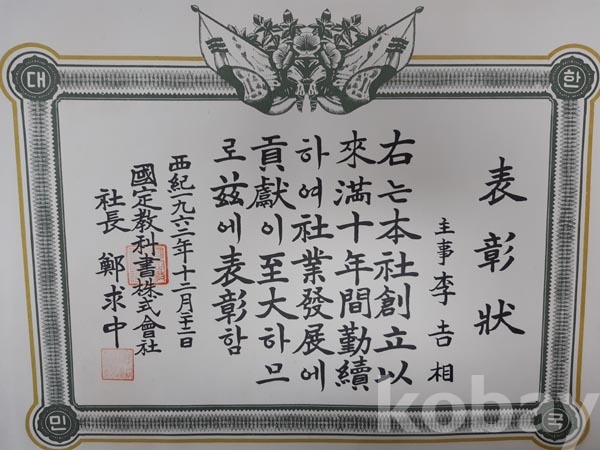 대한
민국
表彰狀
主事 李吉相
右는本社創立以
來滿十年間勤續
하여社業發展에
貢獻이至大하므
로玆에表彰함
西紀一九六二年十二月 日
國定敎科書株式會社
社長 鄭求中
kobay